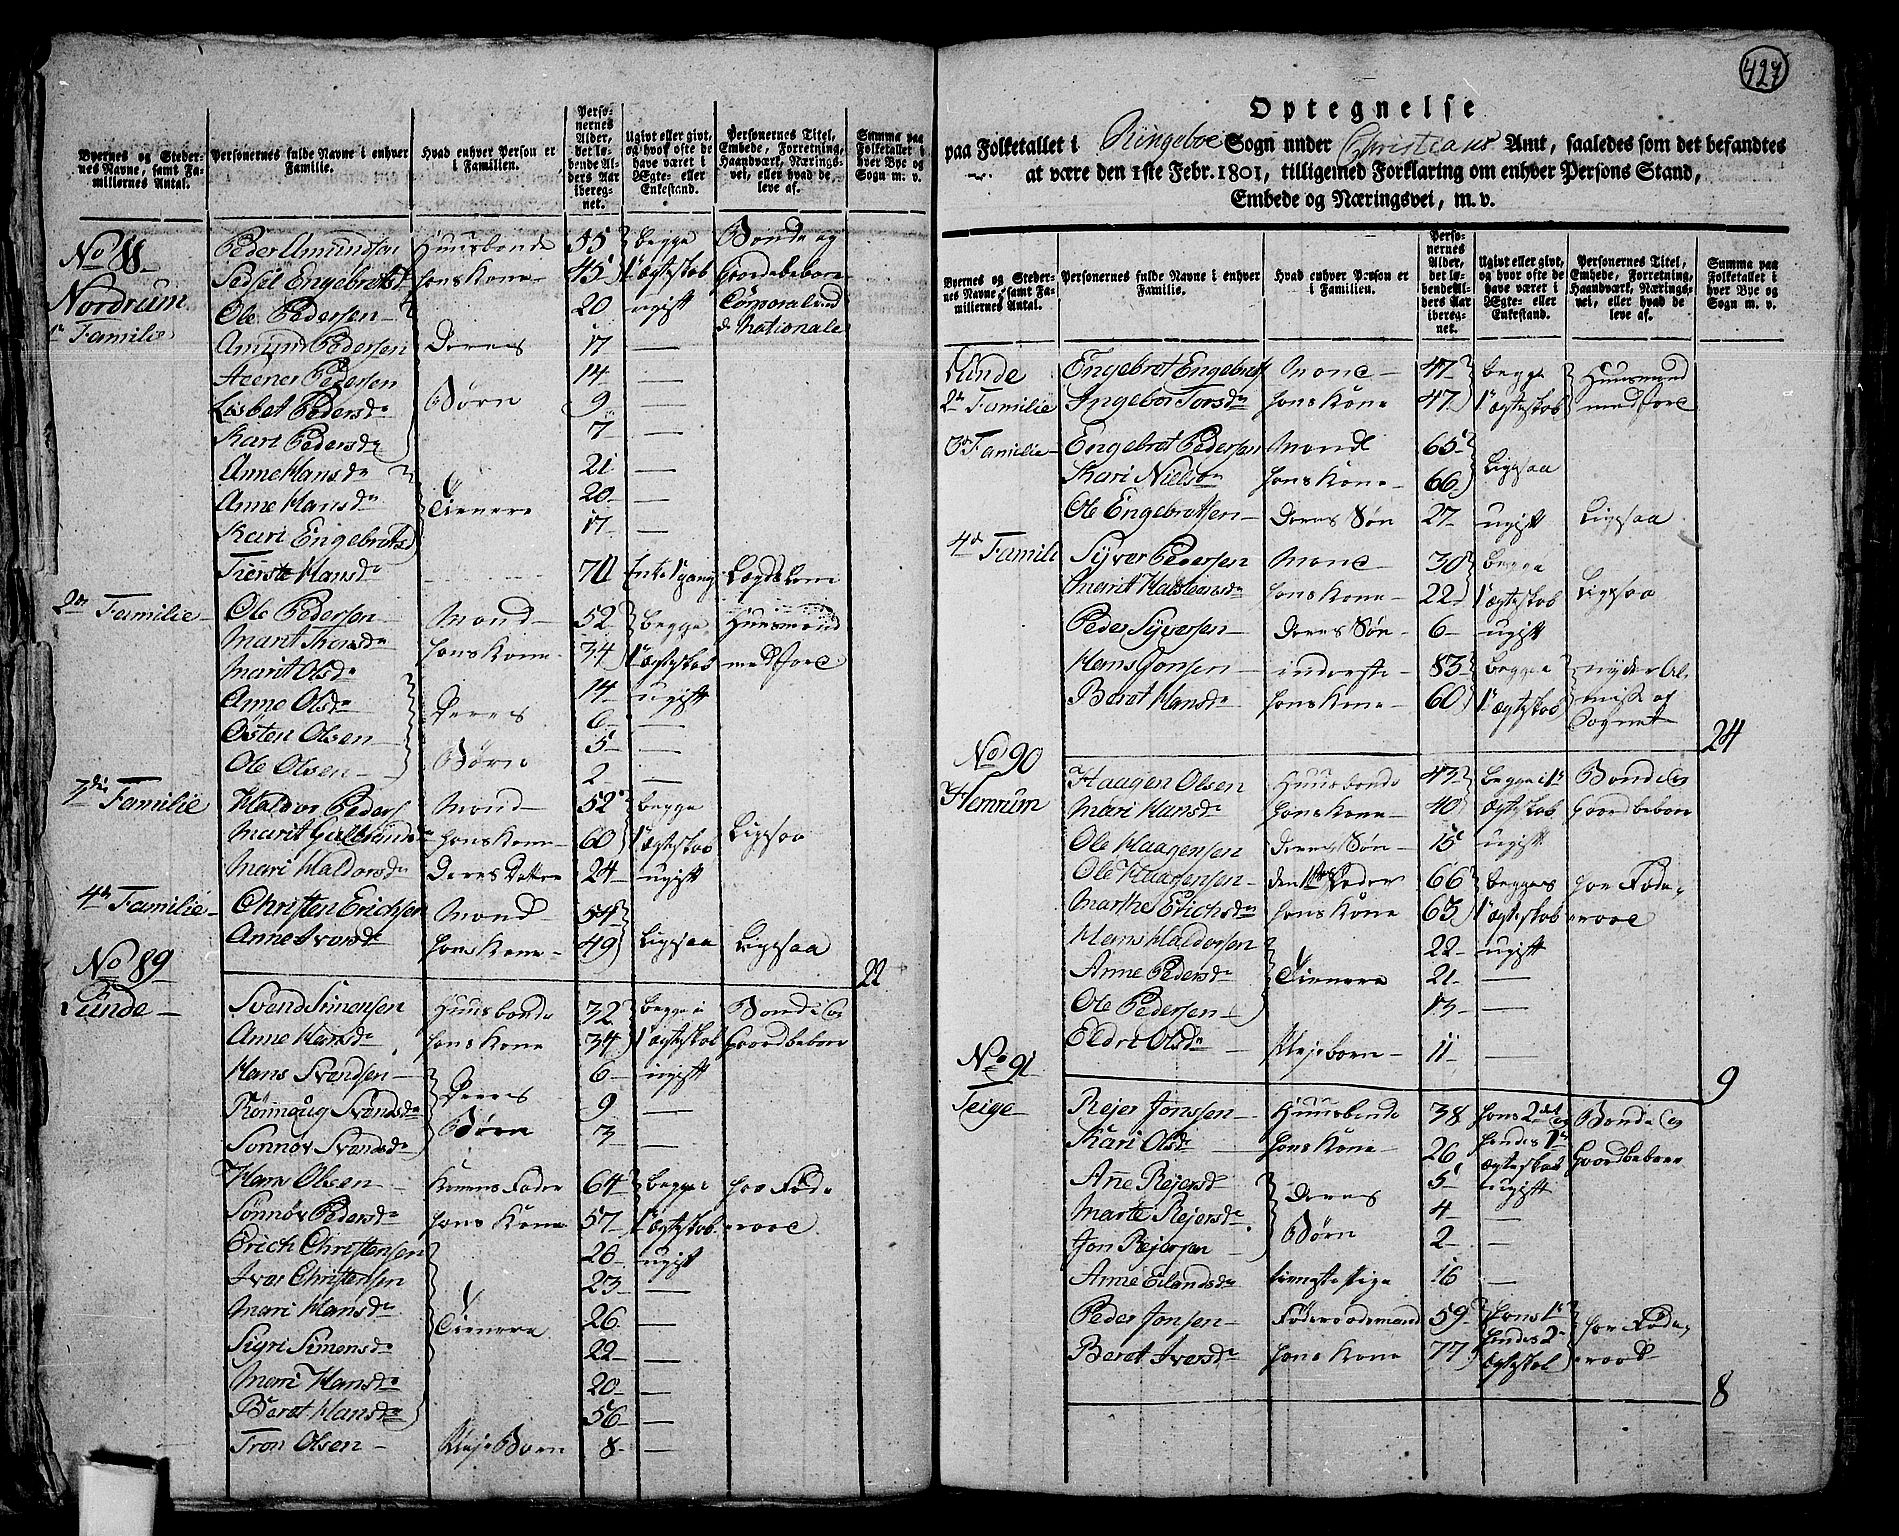 Byernes og Steder-
nes Navne, samt Fa-
miliernes Antal.
Personernes fulde Navne i enhver
Familie.
Hvad enhver Person er
i Familien.
Perso-
nernes
Alder,
det lø-
bende Al-
ders Aar
iberg-
net.
Ugivt eller givt,
og hvor ofte de
have været i
Ægte- eller
Enkestand.
Personernes Titel,
Embede, Forretning,
Haandværk, Nærings-
vei, eller hvad de
leve af.
Summa paa
Folketallet i
hver Bye og
Sogn m. v.
No 88 Peder Amundsen Huusbonde 55 begge Bonde og
Sidsel Engebretsdr hans Kone 45 1te Ægteskab Gaardbeboer
Nordrum Ole Pedersen 20 ugift Corporal ved
de Nationale
1te Familie Amund Pedersen Deres 17 —
Steener Pedersen 14 —
Lisbet Pedersdr Børn 9 —
Kari Pedersdr 7 —
Anne Hansdr 21 —
Anne Hansdr Tienere 20 —
Kari Engebretsd 17 —
Kierste Hansdr 70 Enke 1 gang Lægdslem
2den Familie Ole Pedersen Mand 52 begge Huusmand
Marit Thorsdr hans Kone 34 1te Ægteskab med Jord
Marit Olsdr 14 ugift
Anne Olsdr Deres 6 —
Østen Olsen 5 —
Ole Olsen Børn 2 —
3die Familie Haldor Peders Mand 52 begge
Marit Gulbrandsdr hans Kone 60 1te Ægteskab Ligesaa
Mari Haldorsdr Deres Datter 24 ugift
4de Familie Christen Erichsen Mand 54
Anne Ivarsdr hans Kone 49 Ligesaa Ligesaa
22
No 89
Lunde Svend Simensen Huusbonde 32 begge i Bonde og
Anne Hansdr hans Kone 34 1te Ægteskab Gaardbeboer
Hans Svendsen Deres 6 ugift
Rønnaug Svendsdr 9 —
Sønnøv Svendsdr Børn 3 —
Hans Olsen Konens Fader 64 begge har Føde
Sønnøv Pedersdr hans Kone 57 1te Ægteskab raad
Erich Christensen 26 ugift
Ivar Christensen 23 —
Mari Hansdr Tienere 26 —
Sigri Simensdr 22 —
Mari Hansdr 20 —
Berat Hansdr 56 —
Tron Olsen PleieBarn 8 —
427
Optegnelse
paa Folketallet i Ringeboe Sogn under Christians Amt, saaledes som det befandtes
at være den 1ste Febr. 1801, tilligemed Forklaring om enhver Persons Stand,
Embede og Næringsvei, m. v.
Byernes og Steder-
nes Navne, samt Fa-
miliernes Antal.
Personernes fulde Navne i enhver
Familie.
Hvad enhver Person er
i Familien.
Perso-
nernes
Alder,
det lø-
bende Al-
ders Aar
iberg-
net.
Ugivt eller givt,
og hvor ofte de
have været i
Ægte- eller
Enkestand.
Personernes Titel,
Embede, Forretning,
Haandværk, Nærings-
vei, eller hvad de
leve af.
Summa paa
Folketallet i
hver Bye og
Sogn m. v.
Lunde Engebret Engebrets Mand 47 begge Huusmand
2den Familie Ingebor Torsdr hans Kone 47 1te Ægteskab med Jord
3die Familie Engebret Pedersen Mand 65
Kari Nielsdr hans Kone 66 Ligesaa
Ole Engebretsen Deres Søn 27 ugift Ligesaa
4de Famili Syver Pedersen Mand 30 begge
Marit Halstensdr hans Kone 22 1te Ægteskab Ligesaa
Peder Syversen Deres Søn 6 ugift
Hans Jonsen inderste 83 begge nyder Al-
Berat Hansdr hans Kone 60 1te Ægteskab misse af
Sognet
24
No 90
Hemrum Haagen Olsen Huusbonde 43 begge i 1te Bonde og
Mari Hansdr hans Kone 40 Ægteskab Gaardbeboer
Ole Haagensen Deres Søn 15 ugift
Ole Haagensen Fader 66 begge har Føde-
Marthe Erichsdr hans Kone 63 1te Ægteskab raad
Hans Haldorsen 22 ugift
Anne Pedersdr Tienere 21 —
Ole Pedersen 13 —
Eldri Olsdr Pleiebarn 11 —
9
No 91
Teige Rejer Jonssen Huusbonde 38 hans 2det og Bonde og
Kari Olsd hans Kone 26 hendes 1te Ægteskab Gaardbeboer
Anne Rejersd Deres 5 ugift
Marte Rejersdr 4 —
Jon Rejersen Børn 2 —
Anne Erlandsdr tieneste Pige 16 —
Peder Jonsen Føderaadsmand 59 hans 1te har Føde-
Berat Ivarsdr hans Kone 77 hendes 2de Ægteskab raad
8